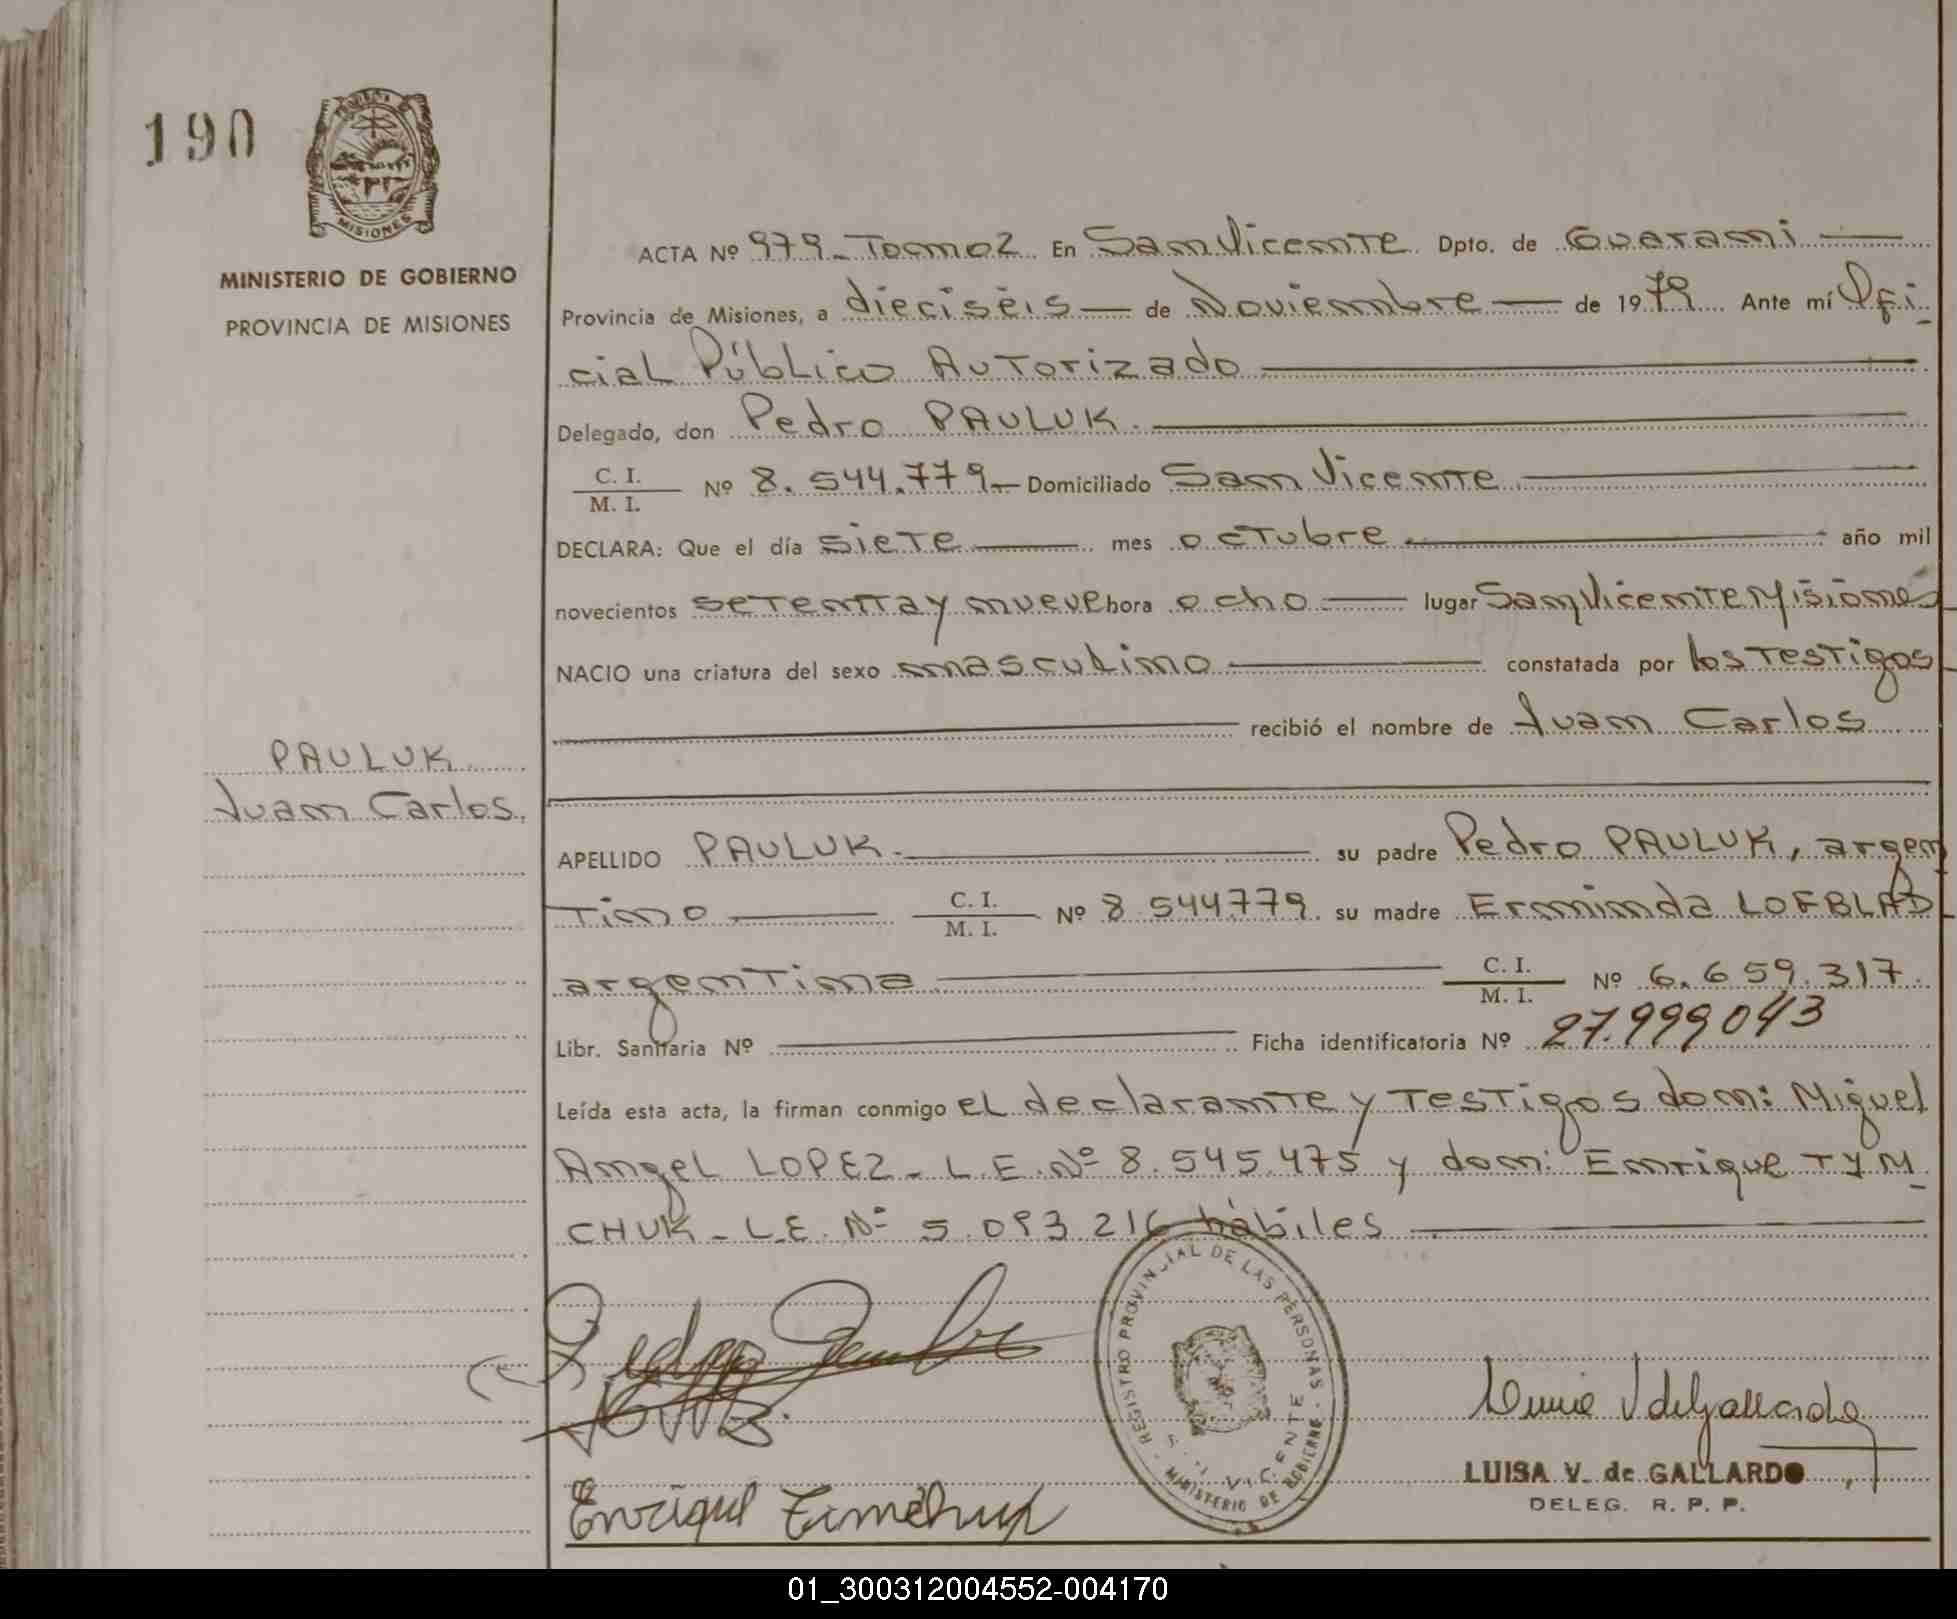 190
MISIONES
MINISTERIO DE GOBIERNO
PROVINCIA DE MISIONES
PAULUK
Juan Carlos.
ACTA Nº 979_ Tomo 2 En San Vicente Dpto. de Guarani —
Provincia de Misiones, a dieciséis — de Noviembre — de 1979 Ante mí Ofi-
cial Público Autorizado
Delegado, don Pedro PAULUK.
C. I.
M. I.
Nº 8.544.779_ Domiciliado San Vicente
DECLARA: Que el día siete mes octubre año mil
novecientos setenta y nueve hora ocho lugar San Vicente Misiones
NACIO una criatura del sexo masculino constatada por los testigos
recibió el nombre de Juan Carlos
APELLIDO PAULUK. su padre Pedro PAULUK, argen
tino C. I.
M. I.
Nº 8 544779 su madre Erminda LOFBLAD
argentina C. I.
M. I.
Nº 6.659.317.
Libr. Sanitaria Nº Ficha identificatoria Nº 27.999043
Leída esta acta, la firman conmigo el declarante y testigos don: Miguel
Angel LOPEZ_ L.E. Nº 8.545.475 y don: Enrique TYM_
CHUK_ L.E. Nº 5.093 216 hábiles
REGISTRO PROVINCIAL DE LAS PERSONAS
VICENTE
MINISTERIO DE GOBIERNO
LUISA V. de GALLARDO
DELEG. R. P. P.
01_300312004552-004170